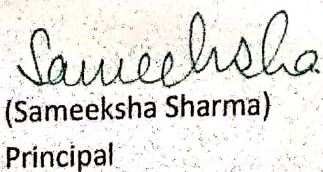 Sameeksha
(Sameeksha Sharma)
Principal